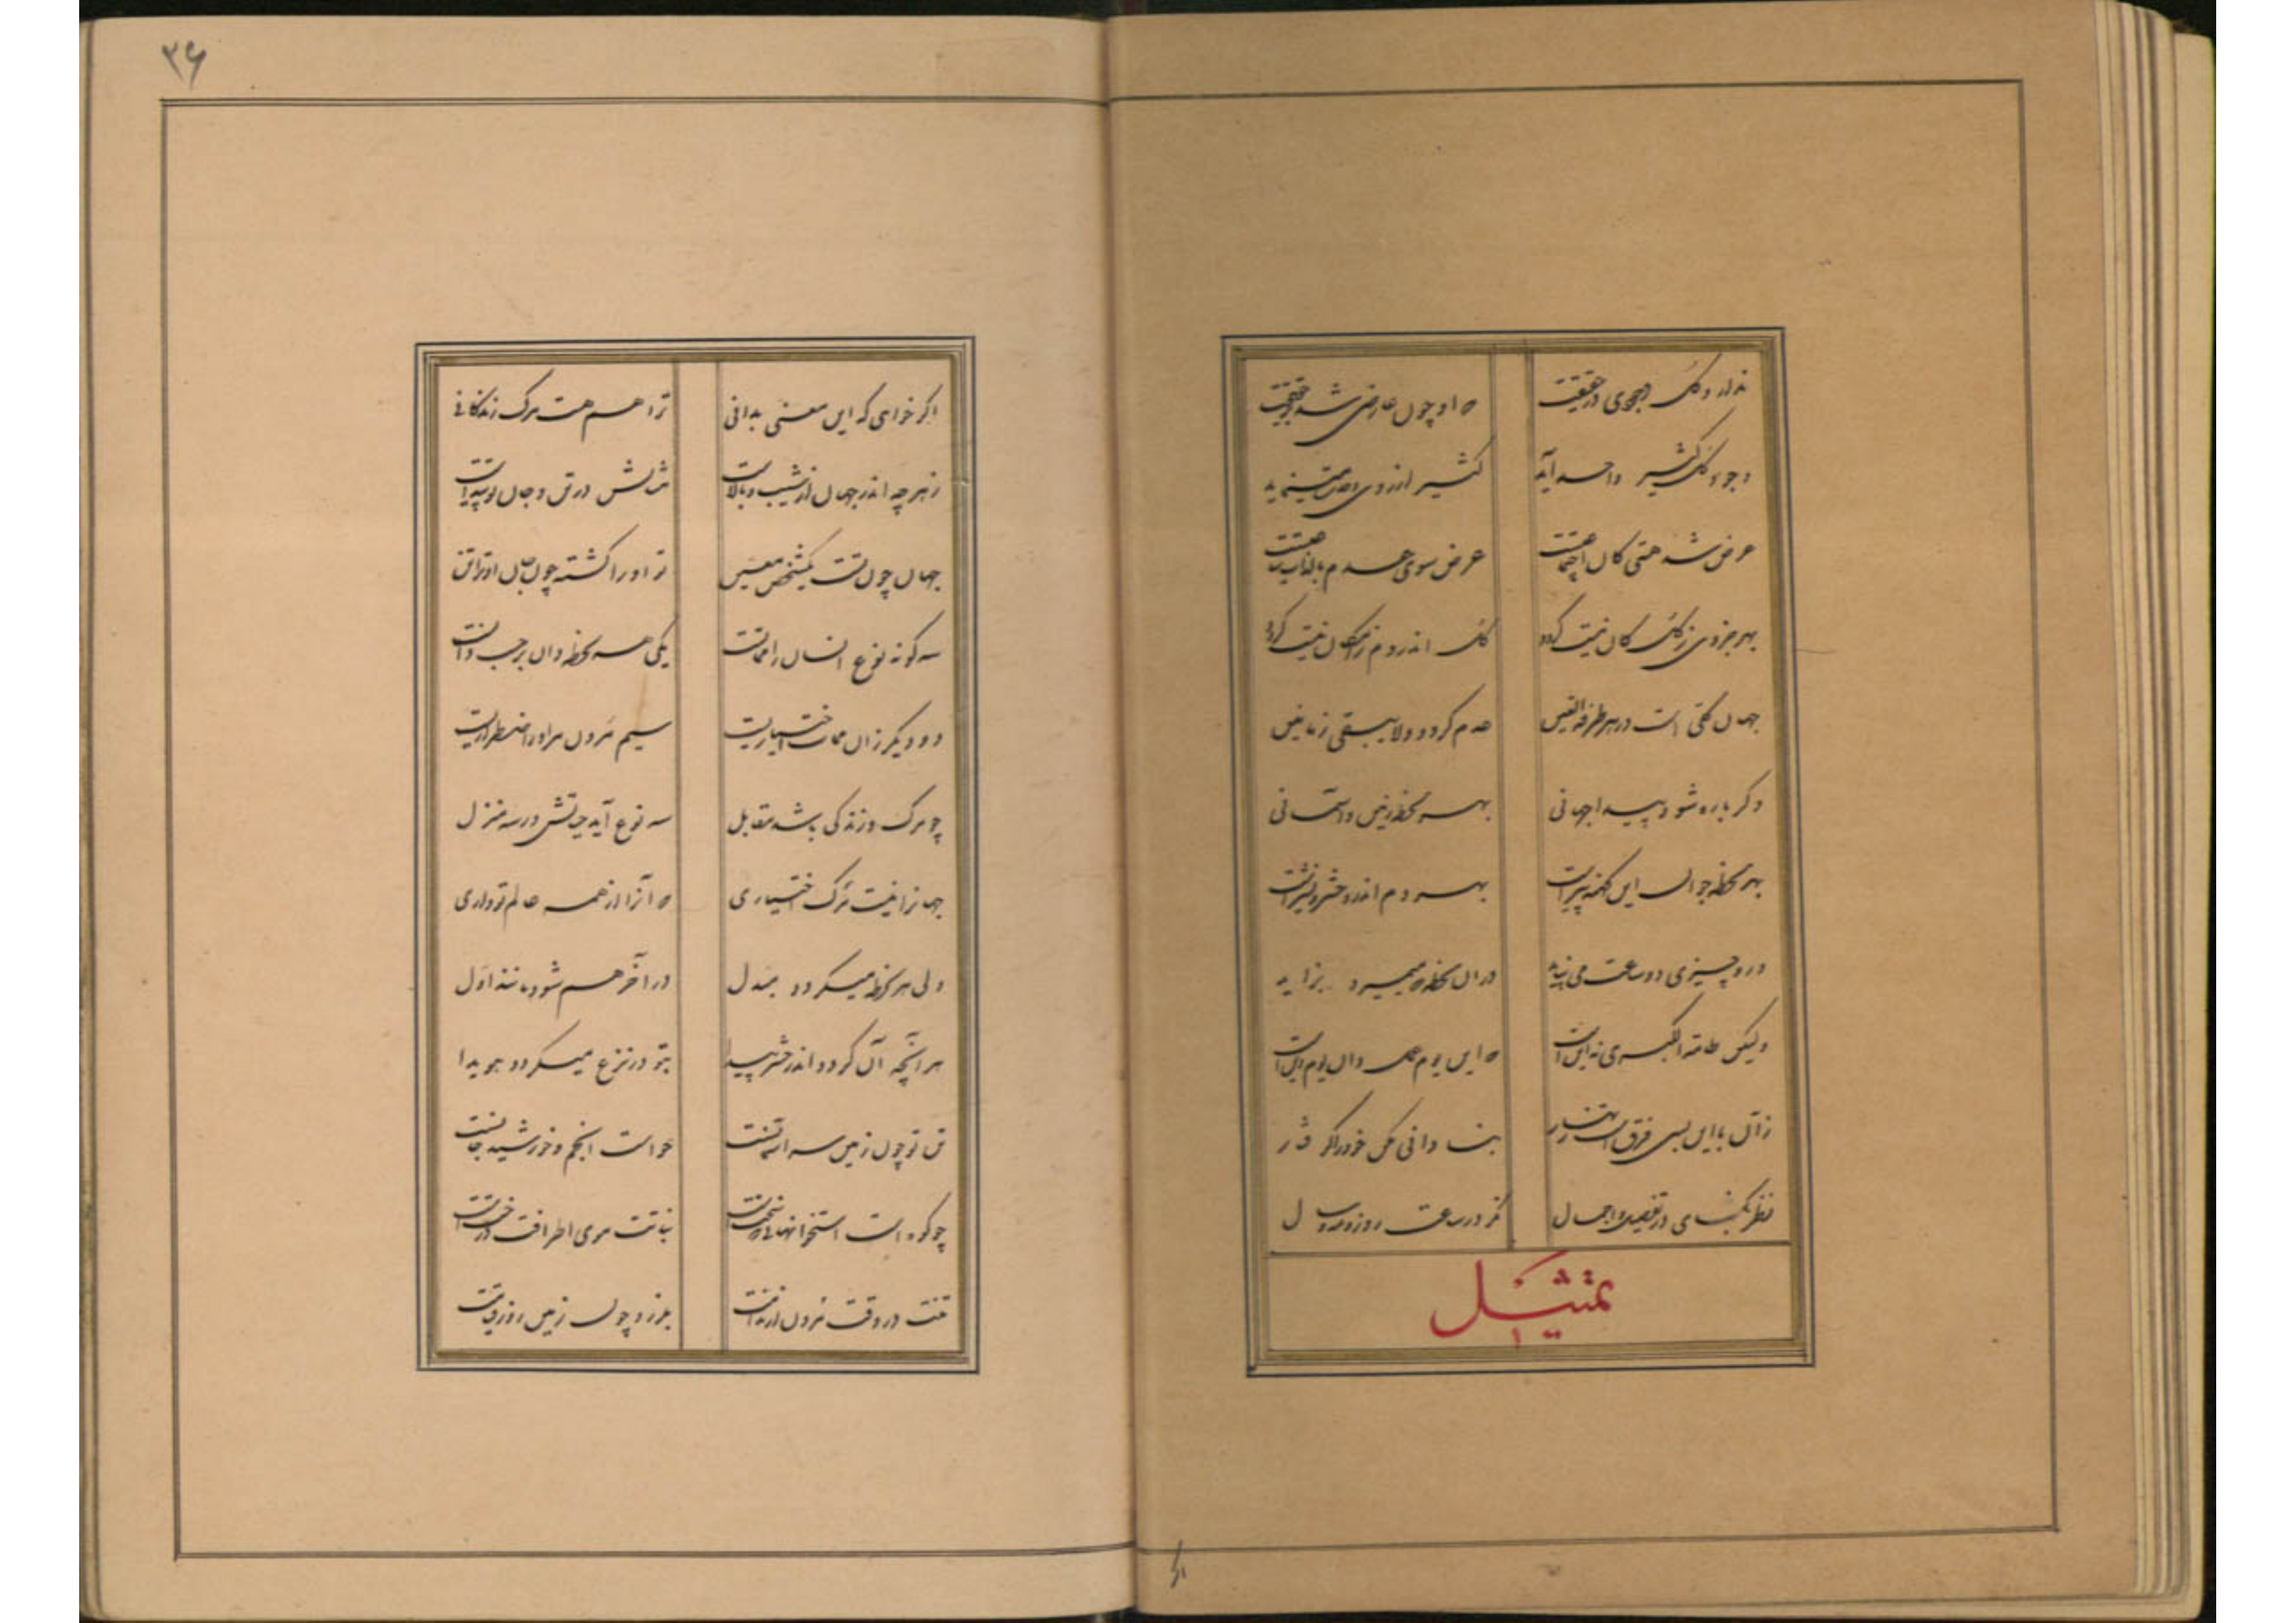 ندارد کل وجودی در حقیقت که او چون عارضی شد بر حقیقت
وجود کل کثیر واحد آید کثیر از روی وحدت مینماید
عرض شد هستی کان اجتماعیست عرض سوی عدم بالذات ساعیست
بهر جزوی ز کل کان نیست گردد کل اندر دم ز امکان نیست گردد
جهان کلی است در هر طرفة العین عدم گردد ولا یبقی زمانین
دگر باره شود پیدا جهانی بهر لحظه زمین و آسمانی
بهر لحظه جوان این کهنه پیرست بهر دم اندرو حشر و نشیرست
درو چیزی دو ساعت می نپاید در آن لحظه که میمیرد بزاید
ولیکن طامة الکبری نه این است که این یوم عمل وان یوم دین است
ز آن تا این بسی فرق است زنهار بنادانی مکن خود را گرفتار
نظر بگشای در تفصیل و اجمال نگر در ساعت و روز و مه و سال
تمثیل
اگر
۳۶
اگر خواهی که این معنی بدانی ترا هم هست مرگ زندگانی
ز هر چه اندر جهان از شیب و بالاست مثالش در تن و جان تو پیداست
جهان چون تست یک شخص معین تو او را گشته چون جان او ترا تن
سه گونه نوع انسان را مماتست یکی هر لحظه وان بر حسب ذاتست
دو دیگر زان ممات اختیاریست سیم مردن مر او را اضطراریست
چو مرگ و زندگی باشد مقابل سه نوع آید حیاتش در سه منزل
جهانرا نیست مرگ اختیاری که آنرا از همه عالم تو داری
ولی هر لحظه میگردد مبدل در آخر هم شود مانند اول
هر آنچه آن گردد اندر حشر پیدا بتو در نزع میگردد هویدا
تن تو چون زمین سر آسمانست حواست انجم و خورشید جانست
چو کوه است استخوانهائی که سختست نباتت موی اطرافت درختست
تنت در وقت مردن از ندامت بلرزد چون زمین روز قیامت